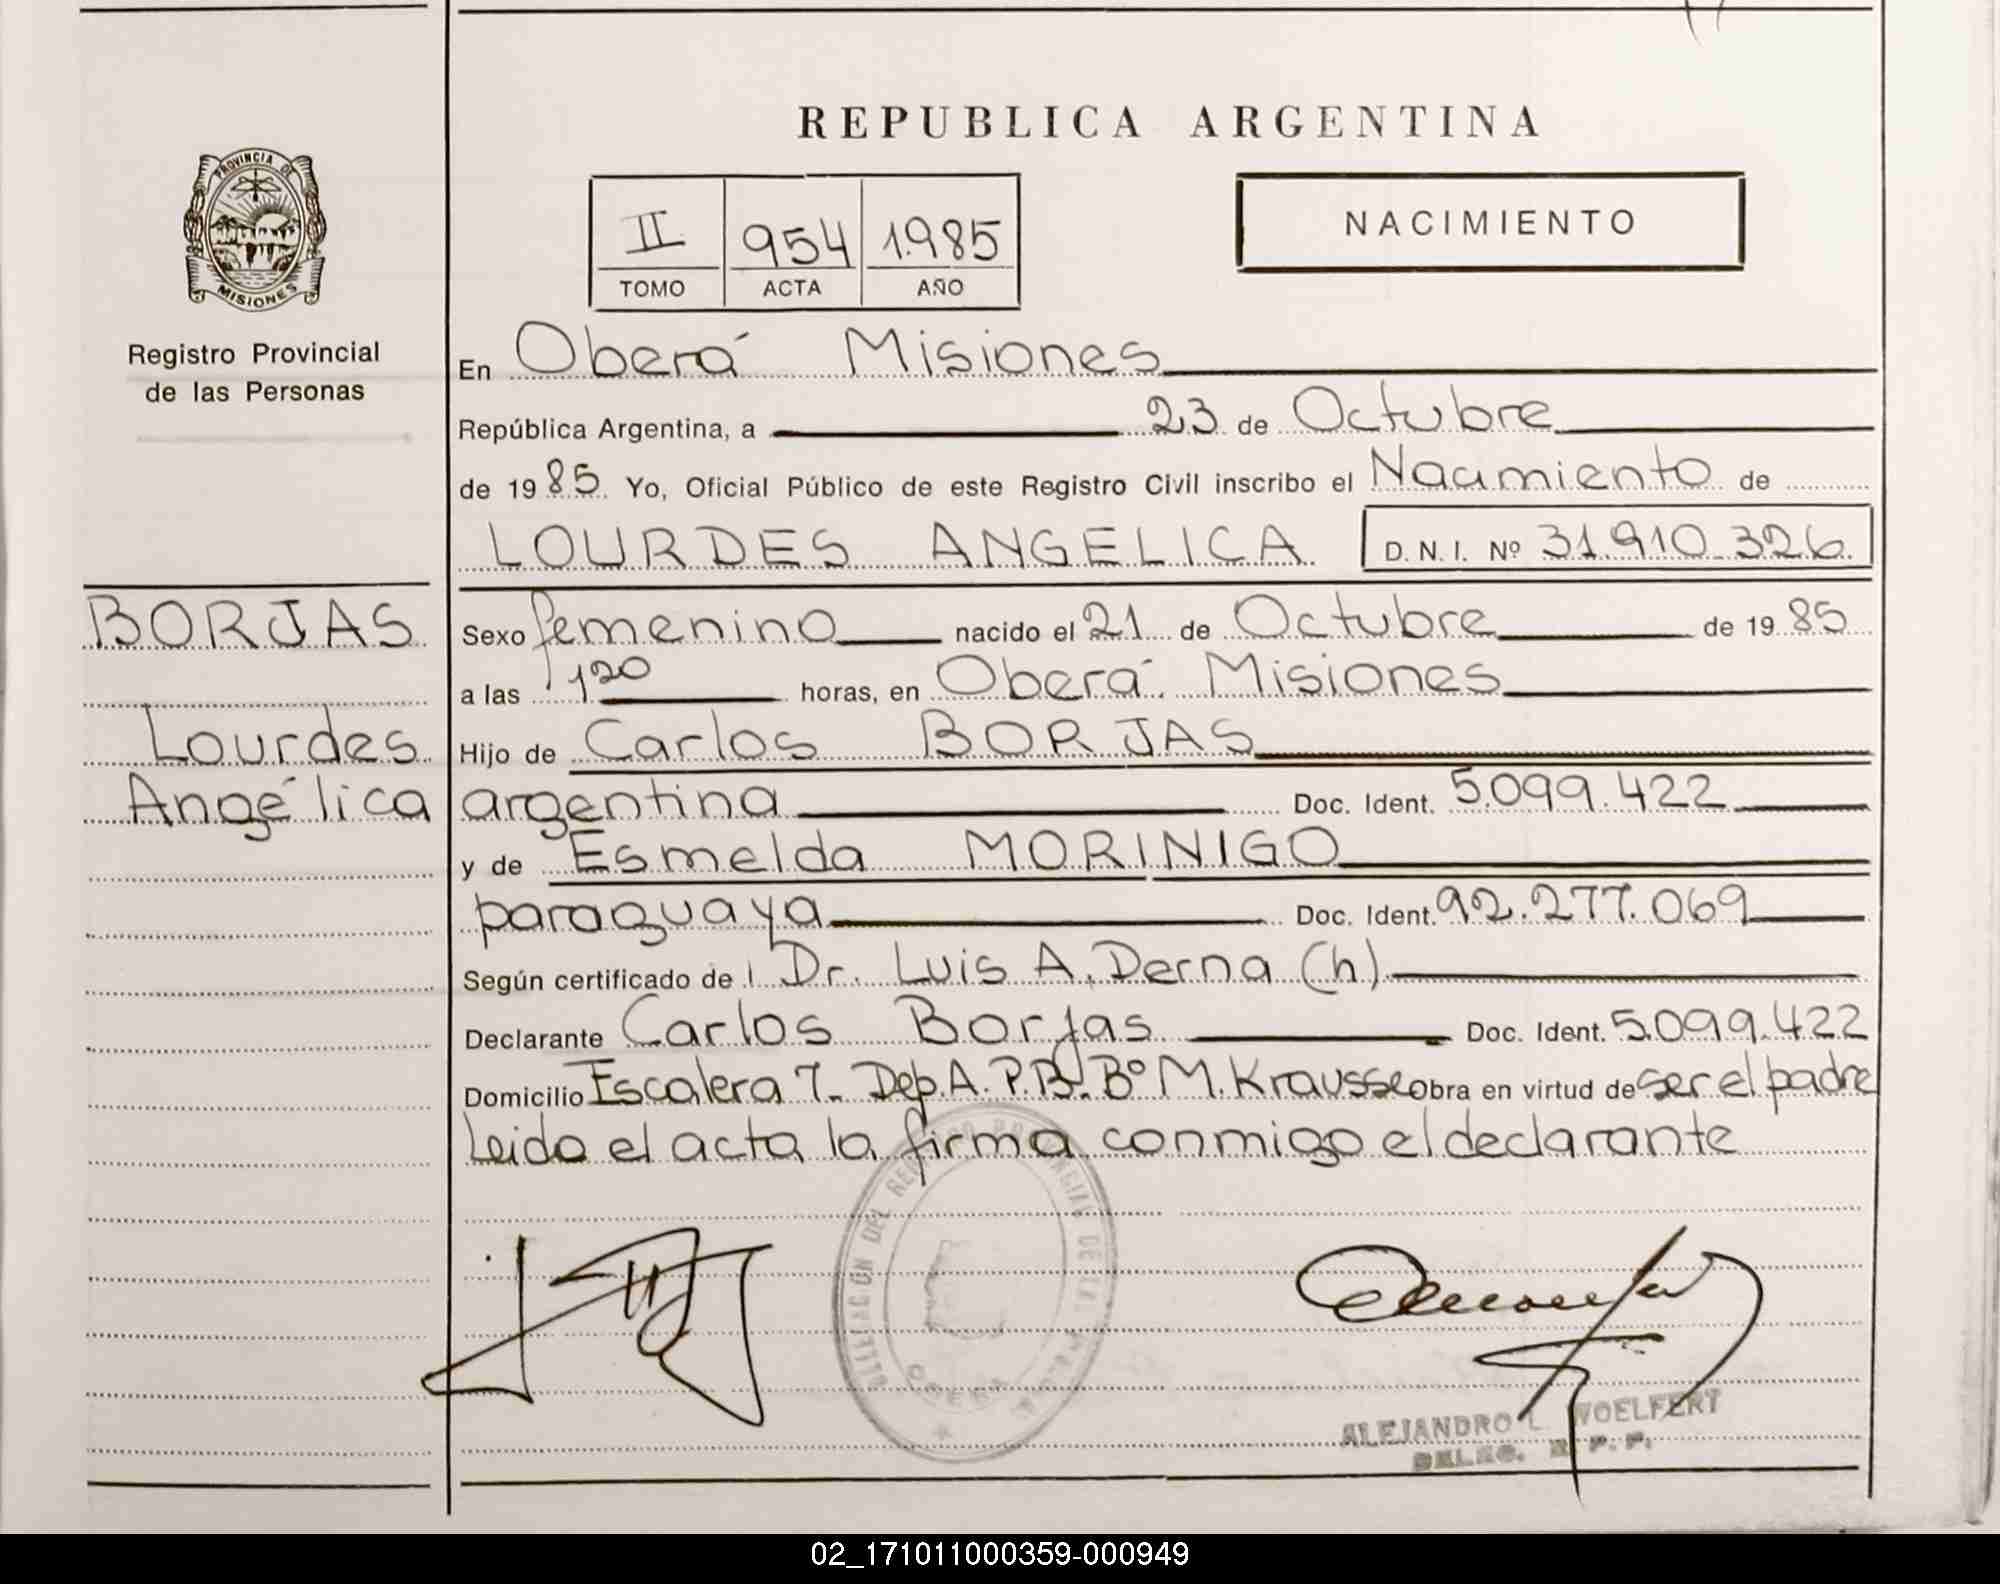 REPUBLICA ARGENTINA
PROVINCIA DE
MISIONES
Registro Provincial
de las Personas
II 954 1.985
TOMO ACTA AÑO
NACIMIENTO
En Oberá Misiones
República Argentina, a 23 de Octubre
de 1985 Yo, Oficial Público de este Registro Civil inscribo el Nacimiento de
LOURDES ANGELICA D. N. I. Nº 31.910.326
BORJAS
Lourdes
Angélica
Sexo femenino nacido el 21 de Octubre de 1985
a las 120 horas, en Oberá Misiones
Hijo de Carlos BORJAS
argentina Doc. Ident. 5.099.422
y de Esmelda MORINIGO
paraguaya Doc. Ident. 92.277.069
Según certificado de Dr. Luis A. Derna (h)
Declarante Carlos Borjas Doc. Ident. 5.099.422
Domicilio Escalera 7. Dep. A. P.B. Bº M. Krausse Obra en virtud de ser el padre
Leido el acta la firma conmigo el declarante
DEL REGISTRO PROVINCIAL DE LAS
OBERA
ALEJANDRO L. WOELFERT
DELEG. R. P. P.
02_171011000359-000949